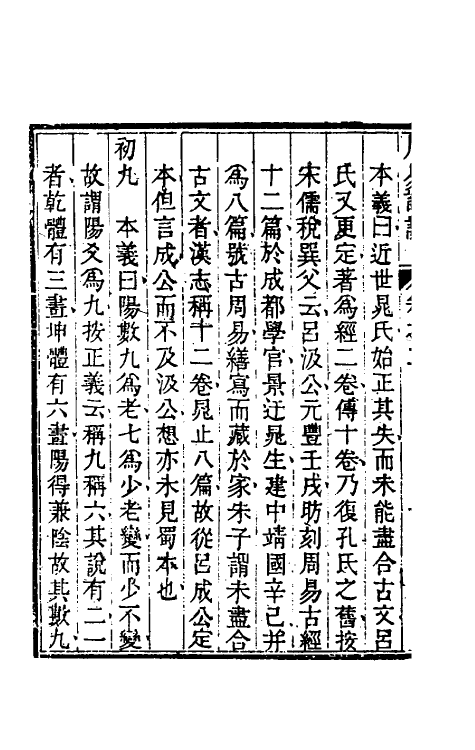 本義曰近世晁氏始正其失而未能盡合古文呂
氏又更定著為經二卷傳十卷乃復孔氏之舊按
宋儒稅巽父云呂汲公元豐壬戌昉刻周易古經
十二篇於成都學官景迂晁生建中靖國辛巳并
為八篇號古周易繕寫而藏於家朱子謂未盡合
古文者漢志稱十二卷晁止八篇故從呂成公定
本但言成公而不及汲公想亦未見蜀本也
初九　本義曰陽數九為老七為少老變而少不變
故謂陽爻為九按正義云稱九稱六其說有二一
者乾體有三畫坤體有六畫陽得兼陰故其數九